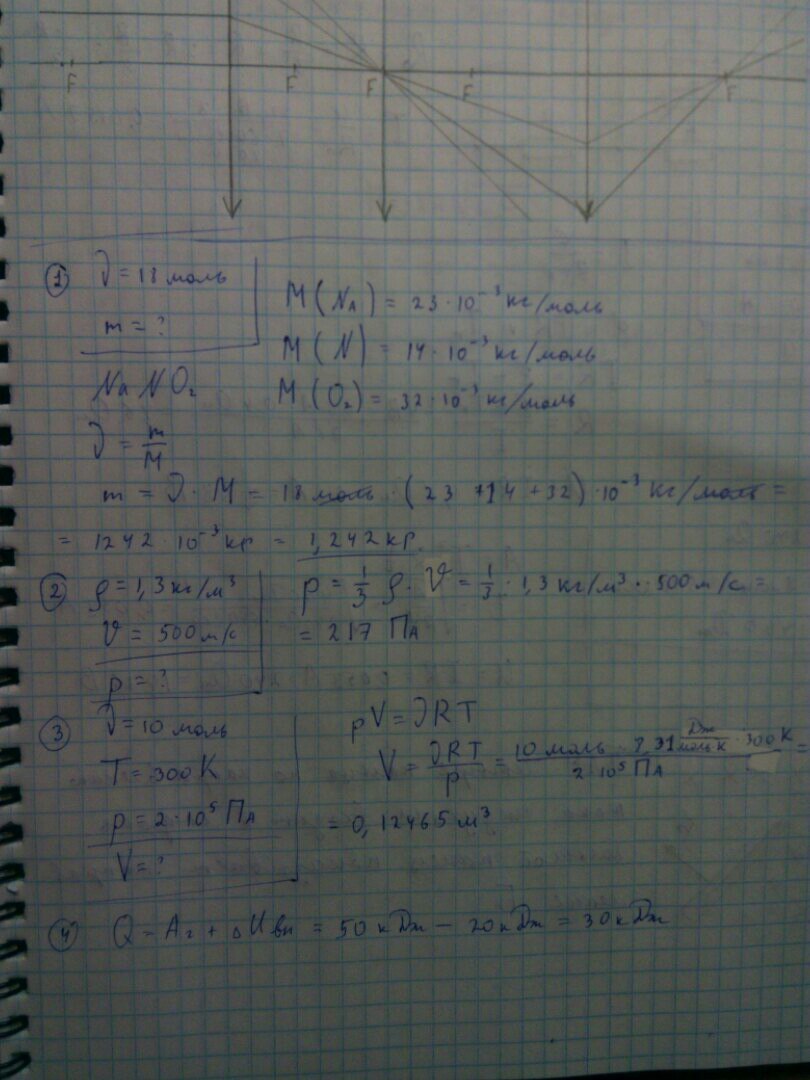 F F F F F
① ν = 18 моль
m = ?
M(Na) = 23 · 10⁻³ кг/моль
M(N) = 14 · 10⁻³ кг/моль
M(O₂) = 32 · 10⁻³ кг/моль
NaNO₂
ν = m/M
m = ν · M = 18 моль · (23 + 14 + 32) · 10⁻³ кг/моль =
= 1242 · 10⁻³ кг = 1,242 кг
② ρ = 1,3 кг/м³
V = 500 м/с
p = ?
p = 1/3 ρ · V = 1/3 · 1,3 кг/м³ · 500 м/с =
= 217 Па
③ ν = 10 моль
T = 300 К
p = 2 · 10⁵ Па
V = ?
pV = νRT
V = νRT/p = 10 моль · 8,31 Дж/моль К · 300 К / 2 · 10⁵ Па =
= 0,12465 м³
④ Q = Aг + ΔUвн = 50 кДж − 20 кДж = 30 кДж